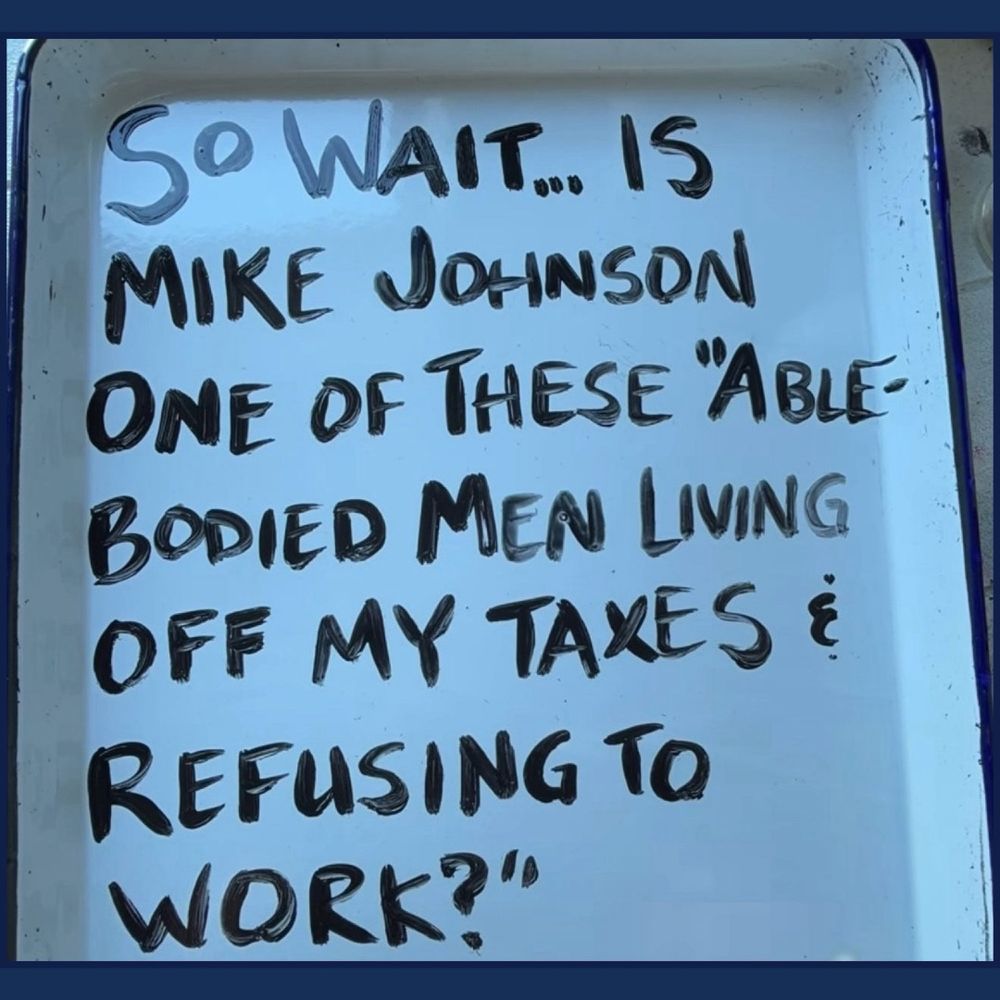 SO WAIT... IS
MIKE JOHNSON
ONE OF THESE "ABLE-
BODIED MEN LIVING
OFF MY TAXES &
REFUSING TO
WORK?"